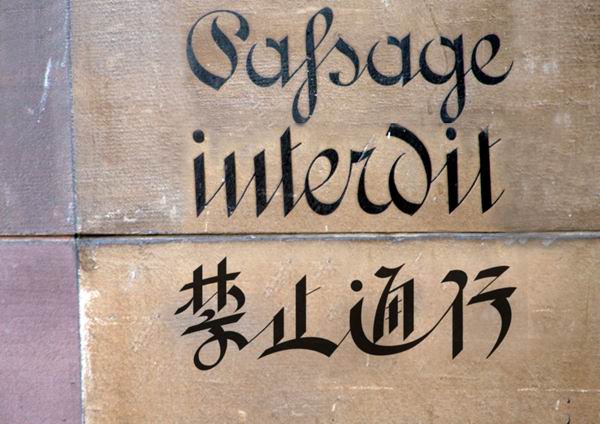 Paſsage
interdit
禁止通行